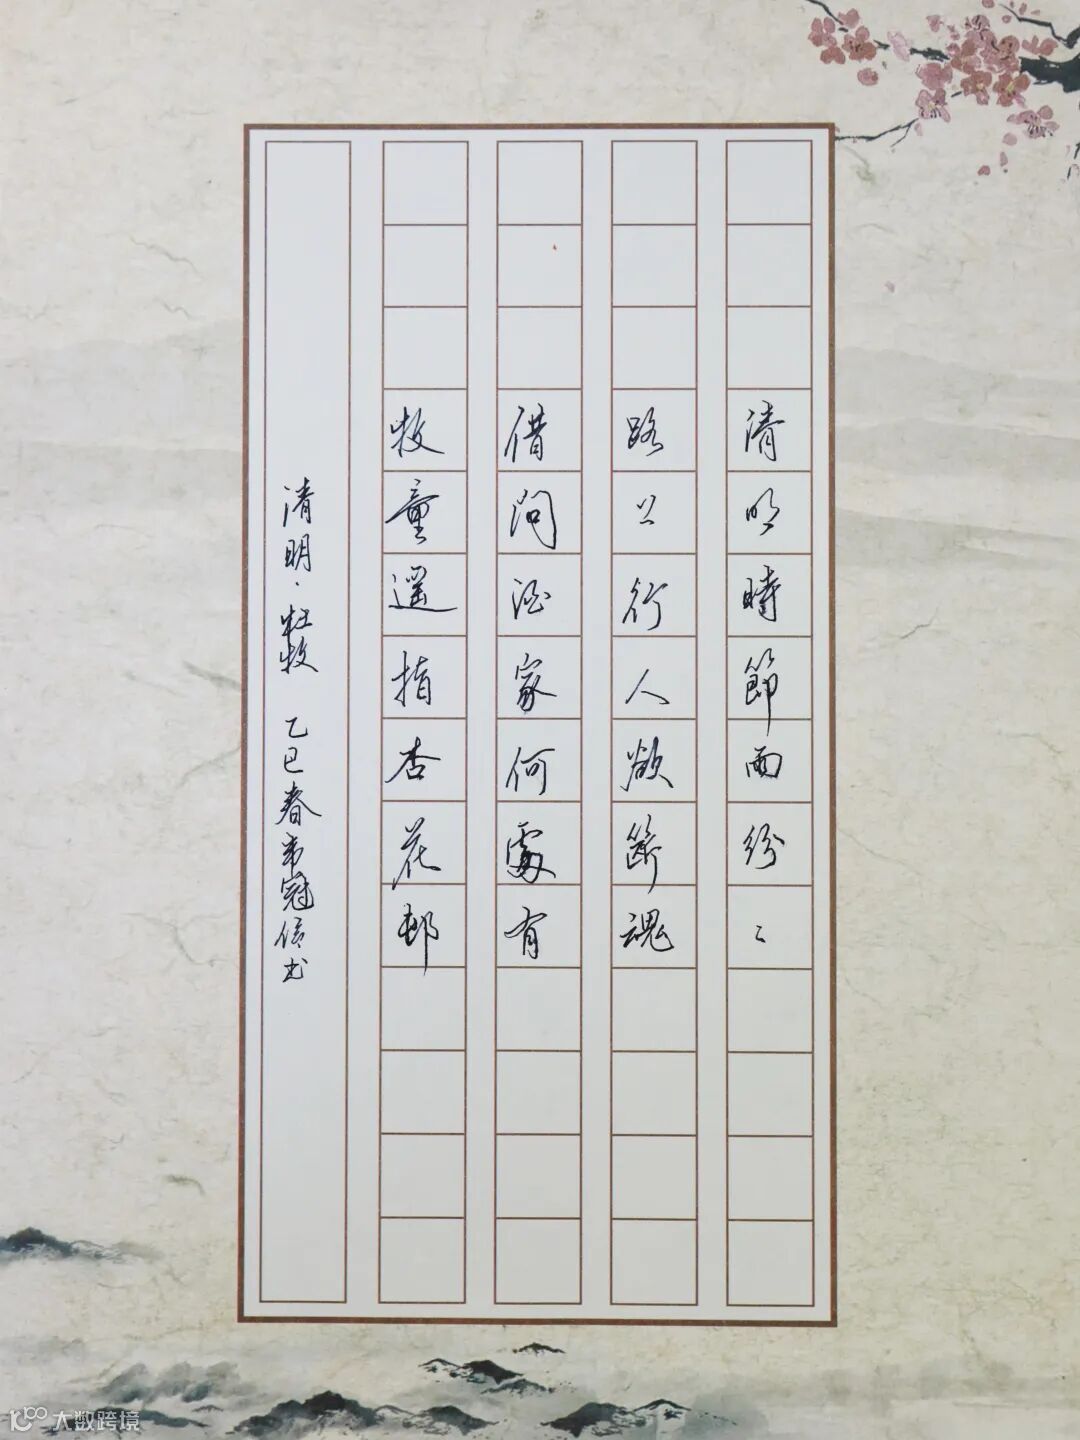 清明時節雨纷〻
路上行人欲斷魂
借問酒家何處有
牧童遥指杏花邨
清明·杜牧 乙巳春韦冠信书
大数跨境